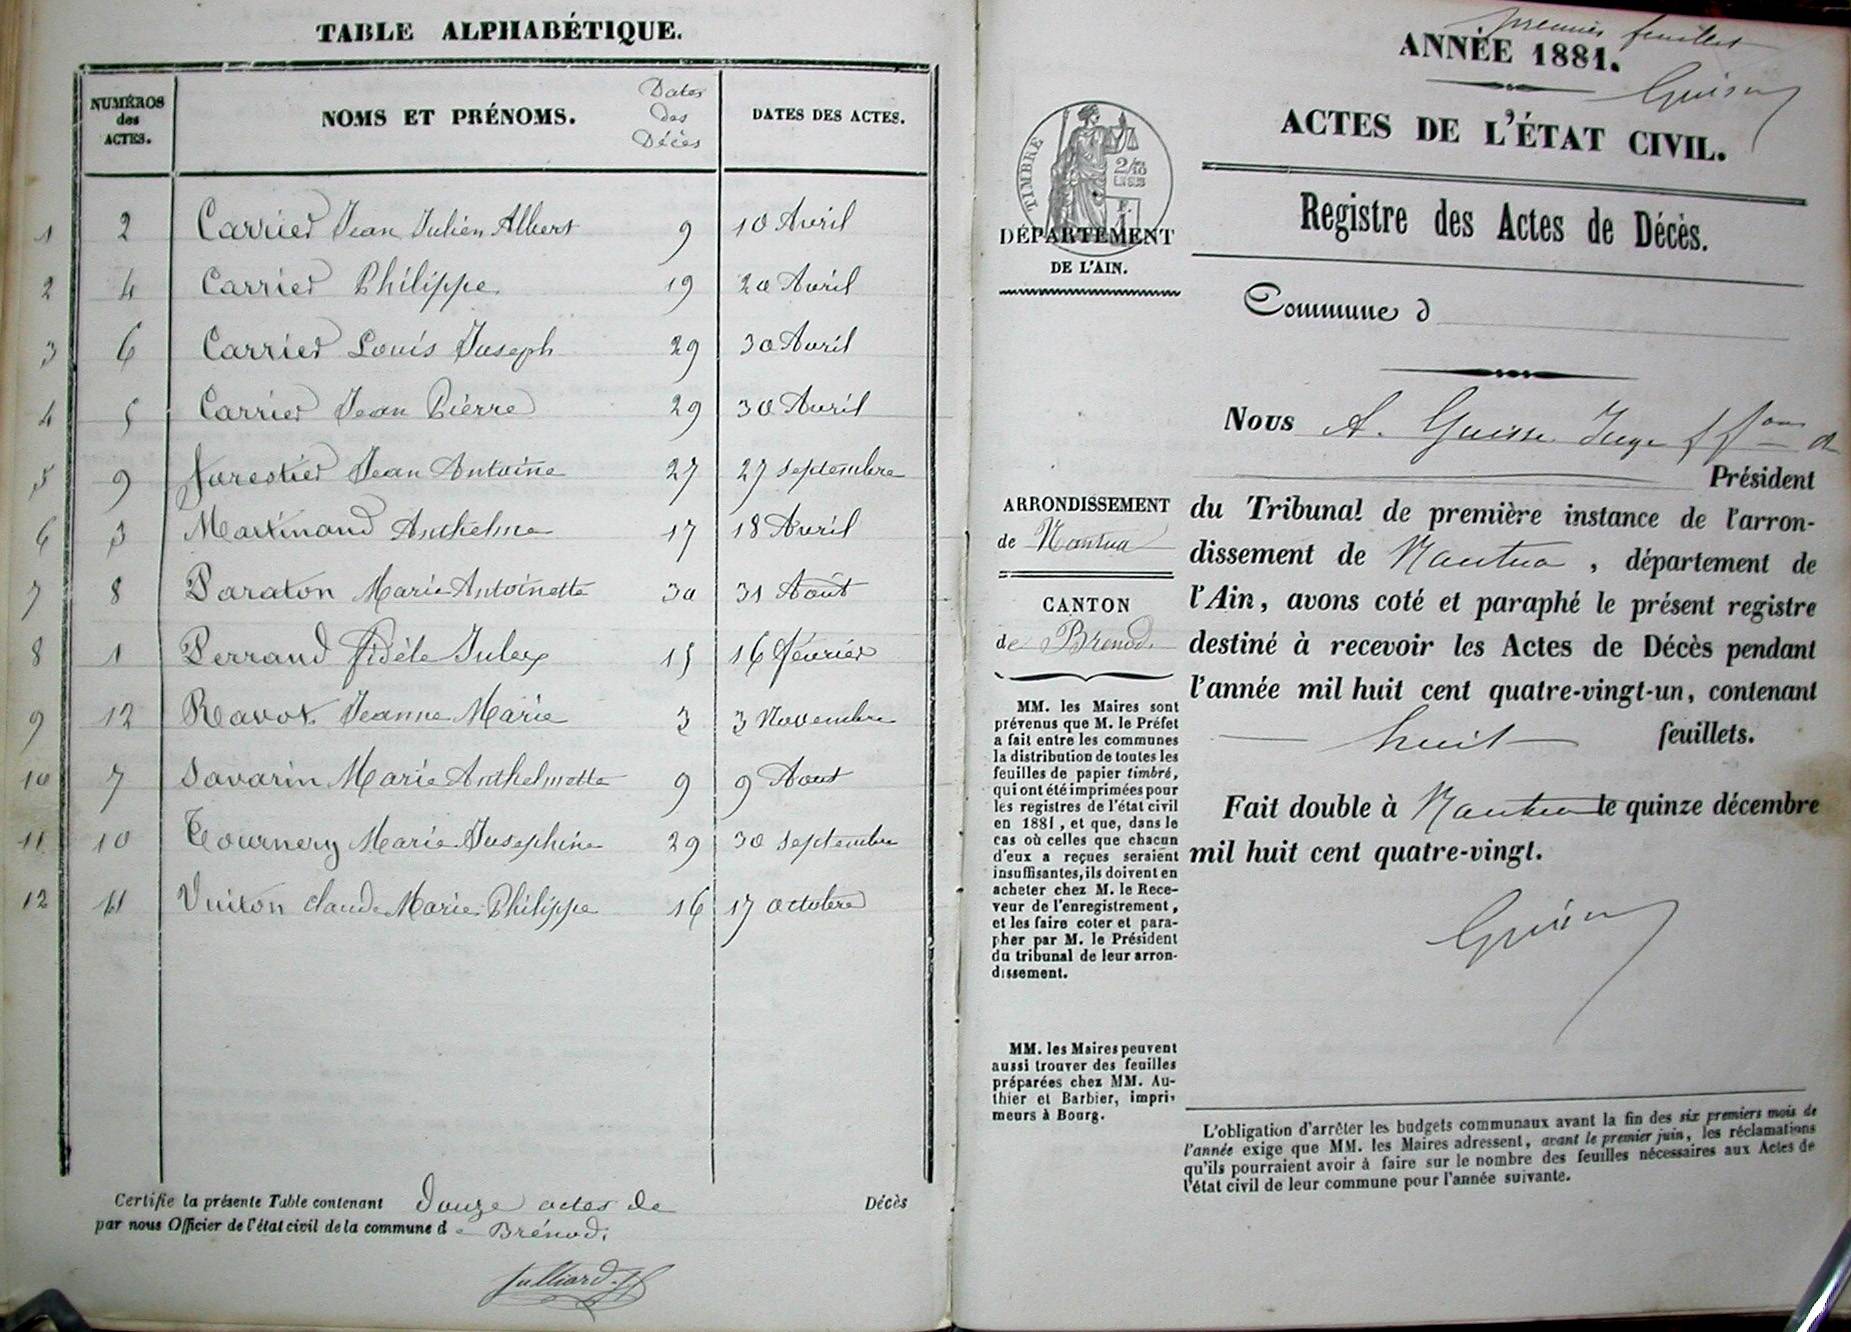 TABLE ALPHABÉTIQUE.
NUMÉROS des ACTES. NOMS ET PRÉNOMS. Dates des Décès DATES DES ACTES.
1 2 Carrier Jean Julien Albert 9 10 Avril
2 4 Carrier Philippe 19 20 Avril
3 6 Carrier Louis Joseph 29 30 Avril
4 5 Carrier Jean Pierre 29 30 Avril
5 9 Forestier Jean Antoine 27 27 septembre
6 3 Martinand Anthelme 17 18 Avril
7 8 Paraton Marie Antoinette 30 31 Août
8 1 Perrand fidèle Julex 15 16 février
9 12 Ravot Jeanne Marie 3 3 Novembre
10 7 Savarin Marie Anthelmette 9 9 Aout
11 10 Tournery Marie Josephine 29 30 septembre
12 11 Vuiton claude Marie Philippe 16 17 octobre
Certifie la présente Table contenant Douze actes de Décès
par nous Officier de l'état civil de la commune d e Brénod.
Julliard
premier feuillet
ANNÉE 1881.
ACTES DE L'ÉTAT CIVIL.
Registre des Actes de Décès.
TIMBRE
DÉPARTEMENT
DE L'AIN.
Commune d
Nous A. Juge
Président
ARRONDISSEMENT
de Nantua
CANTON
de Brenod.
du Tribunal de première instance de l'arron-
dissement de Nantua, département de
l'Ain, avons coté et paraphé le présent registre
destiné à recevoir les Actes de Décès pendant
l'année mil huit cent quatre-vingt-un, contenant
huit feuillets.
Fait double à Nantua le quinze décembre
mil huit cent quatre-vingt.
MM. les Maires sont
prévenus que M. le Préfet
a fait entre les communes
la distribution de toutes les
feuilles de papier timbré,
qui ont été imprimées pour
les registres de l'état civil
en 1881, et que, dans le
cas où celles que chacun
d'eux a reçues seraient
insuffisantes, ils doivent en
acheter chez M. le Rece-
veur de l'enregistrement,
et les faire coter et para-
pher par M. le Président
du tribunal de leur arron-
dissement.
MM. les Maires peuvent
aussi trouver des feuilles
préparées chez MM. Au-
thier et Barbier, impri-
meurs à Bourg.
L'obligation d'arrêter les budgets communaux avant la fin des six premiers mois de
l'année exige que MM. les Maires adressent, avant le premier juin, les réclamations
qu'ils pourraient avoir à faire sur le nombre des feuilles nécessaires aux Actes de
l'état civil de leur commune pour l'année suivante.